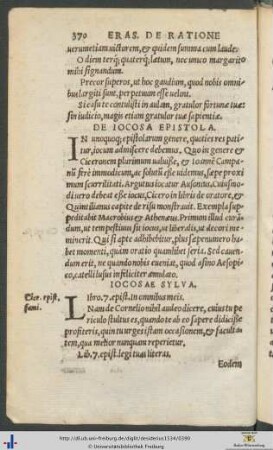 370 ERAS. DE RATIONE
uerumetiam uictorem, & quidem summa cum laude.
O diem terq́; quaterq́; lætum, nec unico margarito
mihi signandum.
Precor superos, ut hoc gaudium, quod nobis omni
bus largiti sunt, perpetuum esse uelint.
Sic esse te contulisti in aulam, gratulor fortunæ tuæ:
sin iudicio, magis etiam gratulor tuæ sapientiæ.
DE IOCOSA EPISTOLA.
IN unoquoq; epistolarum genere, quoties res pati
tur, iocum admiscere debemus. Quo in genere &
Ciceronem plurimum ualuisse, & Ioannē Campa
nū ferè immodicum, ac solutū esse uidemus, sæpe proxi
mum scurrilitati. Argutus iocatur Ausonius. Cuiusmo
di uero debeat esse iocus, Cicero in libris de oratore, &
Quintilianus capite de risu monstrauit. Exempla sup
peditabit Macrobius & Athenæus. Primum illud curā
dum, ut tempestiuus sit iocus, ut liberalis, ut decori me
minerit. Qui si apte adhibebitur, plus sæpenumero ha
bet momenti, quàm oratio quamlibet seria. Sed cauen
dum erit, ne quando nobis eueniat, quod asino Aesopi
co, catelli lusus infeliciter æmulato.
IOCOSAE SYLVA.
Cicer. epist.
fami.
Libro.7.epist.in omnibus meis.
Nam de Cornelio nihil audeo dicere, cuius tu pe
riculo stultus es, quando te ab eo sapere didicisse
profiteris, quin tu urges istam occasionem, & faculta
tem, qua melior nunquam reperietur.
Lib.7.epist.legi tuas literas.
Eodem
http://dl.ub.uni-freiburg.de/diglit/desiderius1534/0390
© Universitätsbibliothek Freiburg